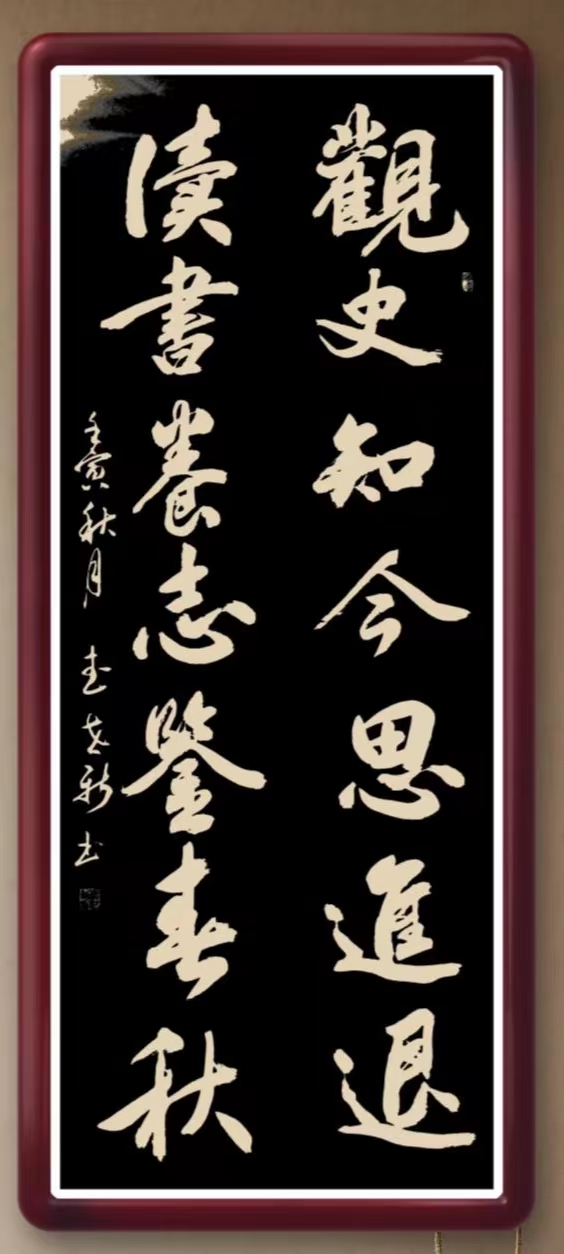 觀史知今思進退
讀書養志鑒春秋
壬寅秋月